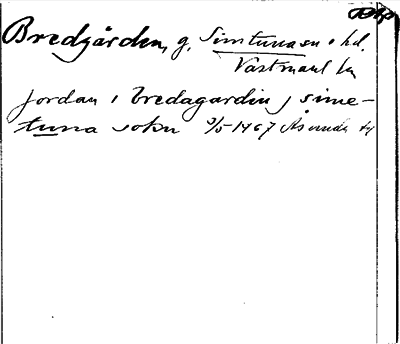 Bredgården, g. Simtuna sn o hd.
Västmanl. ln
jordan i bredagardin j sime-
tuna sokn 3/5 1467 Åsunda